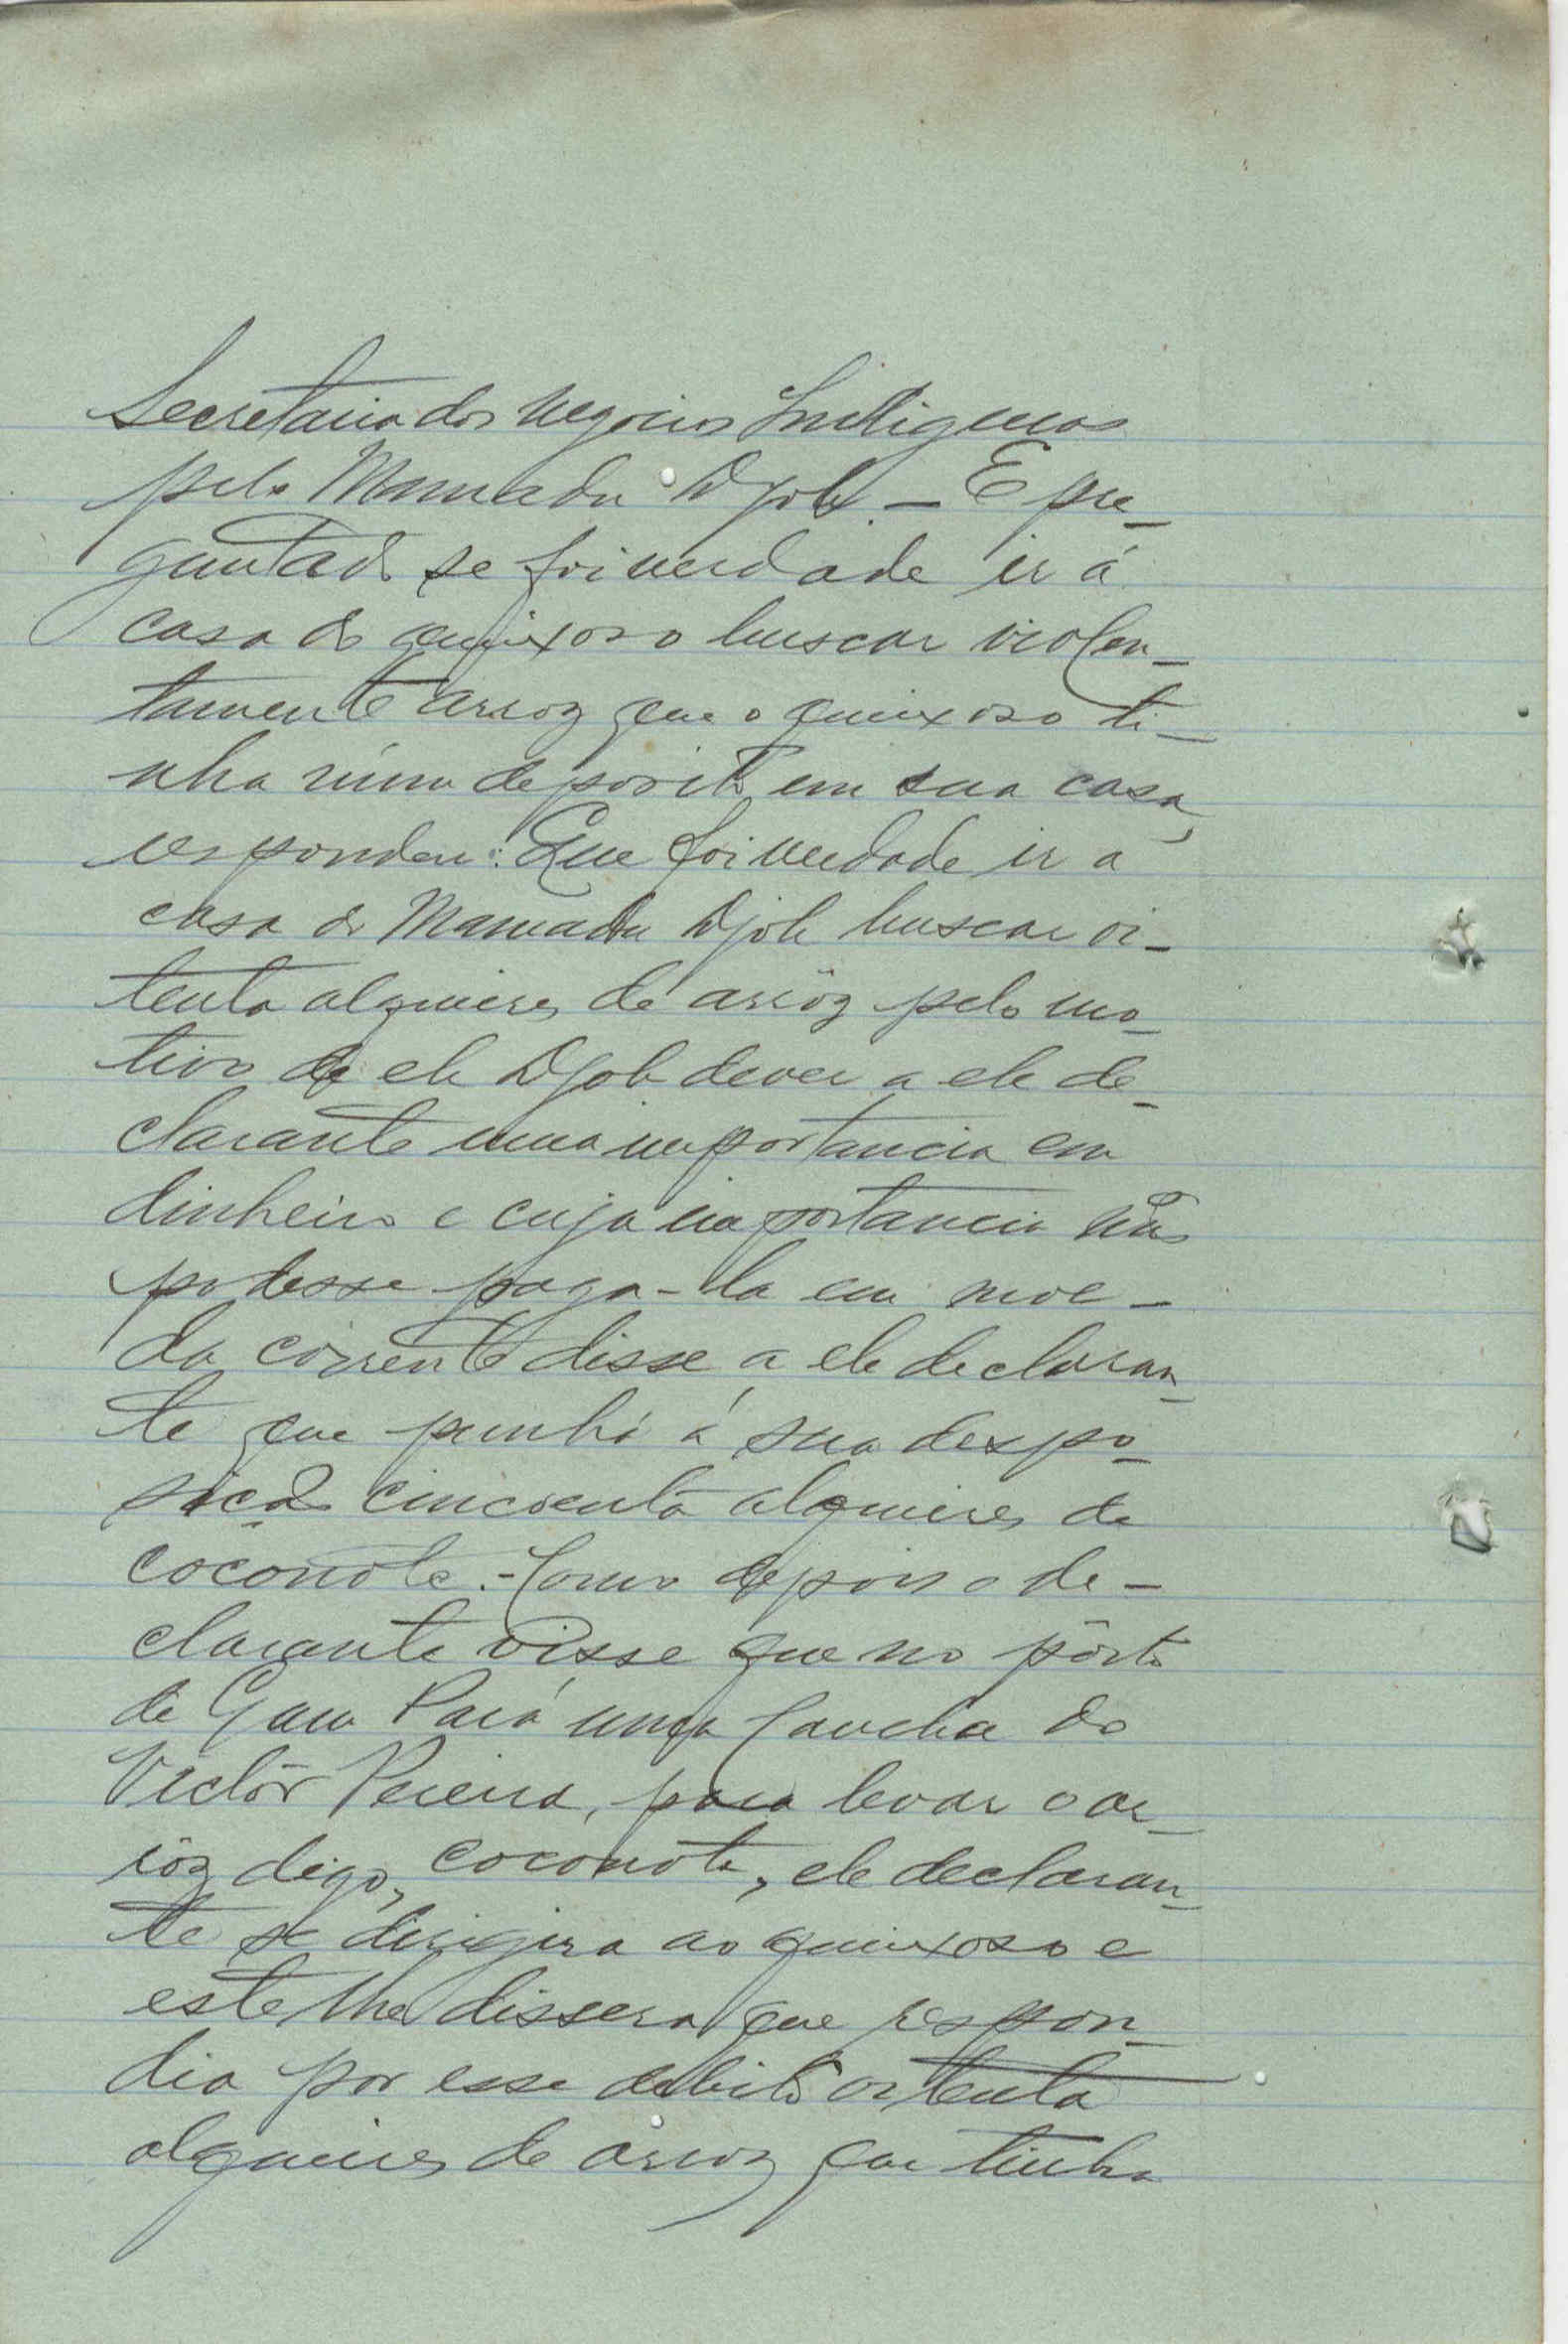 Secretaria dos Negocios Indigenas
pelo Mamadu Djob. — E pre-
guntado se foi verdade ir á
casa do queixoso buscar violen-
tamente arroz que o queixoso ti-
nha num deposito em sua casa,
respondeu: Que foi verdade ir a
casa do Mamadu Djob buscar oi-
tenta alqueires de arrôz pelo mo-
tivo de ele Djob dever a ele de-
clarante uma importancia em
dinheiro e cuja importancia não
podesse paga-la em moe-
da corrente disse a ele declaran-
te que punha á sua despo-
sição cincoenta alqueires de
coconote. - Como depois o de-
clarante visse que no pôrto
de Gam Pará uma lancha do
Victôr Pereira, para levar o ar-
rôz digo, coconote, ele declaran-
te se dirigira ao queixoso e
este lhe dissera que respon-
dia por esse debito oitenta
alqueires de arroz que tinha